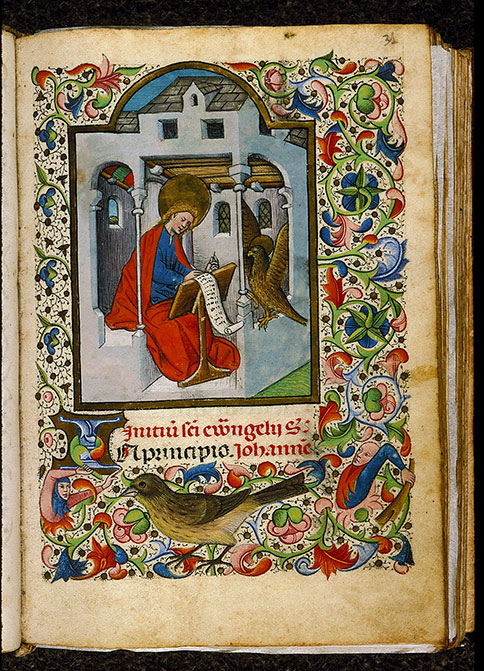 31
Initiū sci ewngelij S.
IN principio. Johanne